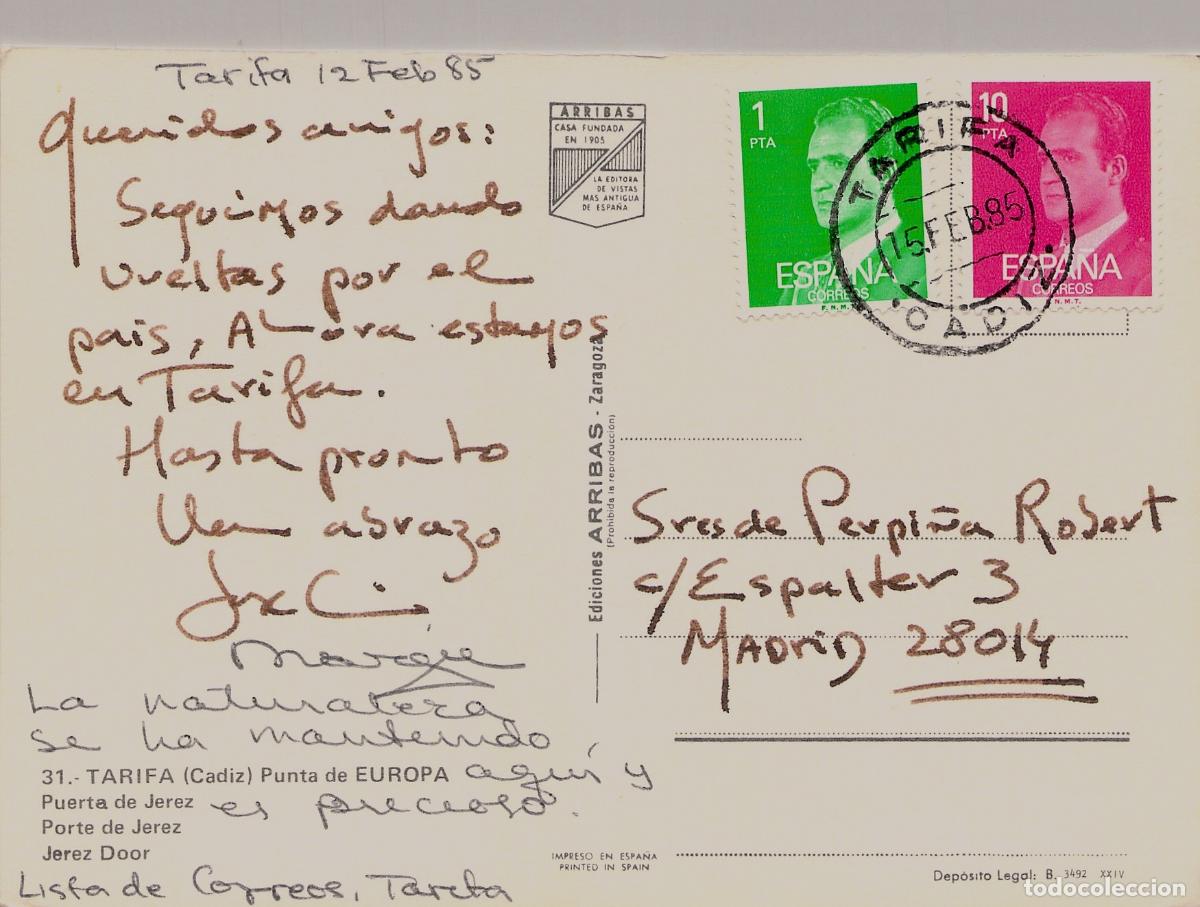 Tarifa 12 Feb 85
Queridos amigos:
Seguimos dando
vueltas por el
pais, Ahora estamos
en Tarifa.
Hasta pronto
Un abrazo
La naturaleza
se ha mantenido,
aquí y
es precioso.
Lista de Correos, Tarifa
31.- TARIFA (Cadiz) Punta de EUROPA
Puerta de Jerez
Porte de Jerez
Jerez Door
ARRIBAS
CASA FUNDADA
EN 1905
LA EDITORA
DE VISTAS
MAS ANTIGUA
DE ESPAÑA
Ediciones ARRIBAS - Zaragoza
(Prohibida la reproducción)
IMPRESO EN ESPAÑA
PRINTED IN SPAIN
1
PTA
ESPAÑA
CORREOS
F.N.M.T.
10
PTA
ESPAÑA
CORREOS
F.N.M.T.
TARIFA
15.FEB.85
CADIZ
Sres de Perpiña Robert
c/Espalter 3
MADRID 28014
Depósito Legal: B. 3492 XXIV
todocoleccion